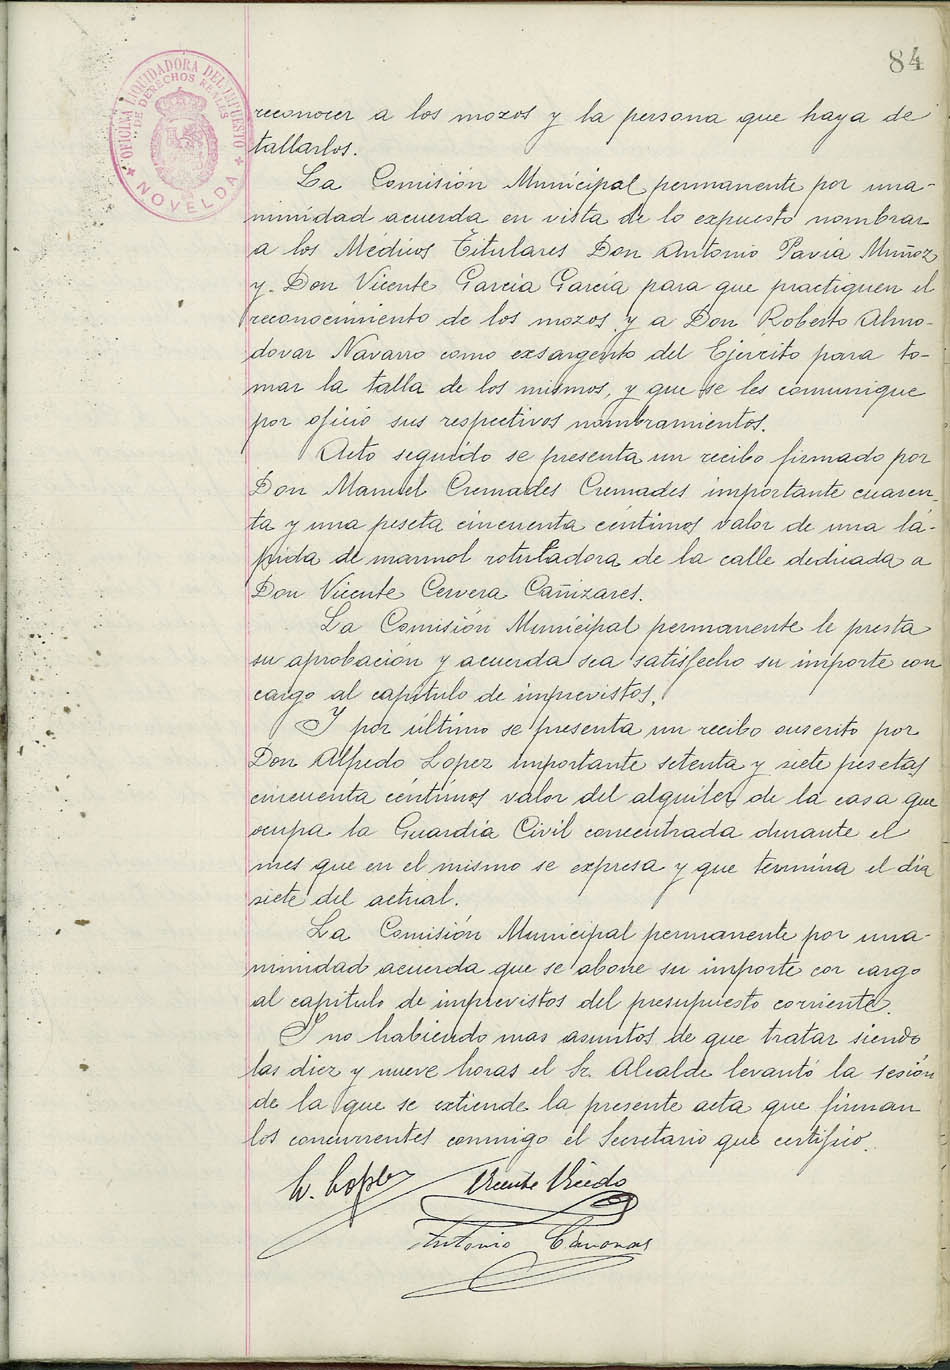 84
OFICINA LIQUIDADORA DEL IMPUESTO
DE DERECHOS REALES
NOVELDA
reconocer a los mozos y la persona que haya de
tallarlos.
La Comisión Municipal permanente por una-
nimidad acuerda en vista de lo expuesto nombrar
a los Médicos Titulares Don Antonio Pavia Muñoz
y Don Vicente García García para que practiquen el
reconocimiento de los mozos y a Don Roberto Almo-
dovar Navarro como exsargento del Ejército para to-
mar la talla de los mismos, y que se les comunique
por oficio sus respectivos nombramientos.
Acto seguido se presenta un recibo firmado por
Don Manuel Cremades Cremades importante cuaren-
ta y una peseta cincuenta céntimos valor de una lá-
pida de marmol rotuladora de la calle dedicada a
Don Vicente Cervera Cañizares.
La Comisión Municipal permanente le presta
su aprobación y acuerda sea satisfecho su importe con
cargo al capítulo de imprevistos.
Y por último se presenta un recibo suscrito por
Don Alfredo Lopez importante setenta y siete pesetas
cincuenta céntimos valor del alquiler de la casa que
ocupa la Guardia Civil concentrada durante el
mes que en el mismo se expresa y que termina el día
siete del actual.
La Comisión Municipal permanente por una-
nimidad acuerda que se abone su importe con cargo
al capitulo de imprevistos del presupuesto corriente.
Y no habiendo mas asuntos de que tratar siendo
las diez y nueve horas el Sr. Alcalde levantó la sesión
de la que se extiende la presente acta que firman
los concurrentes conmigo el Secretario que certifico.
Lopez Vicente
Antonio Cánovas